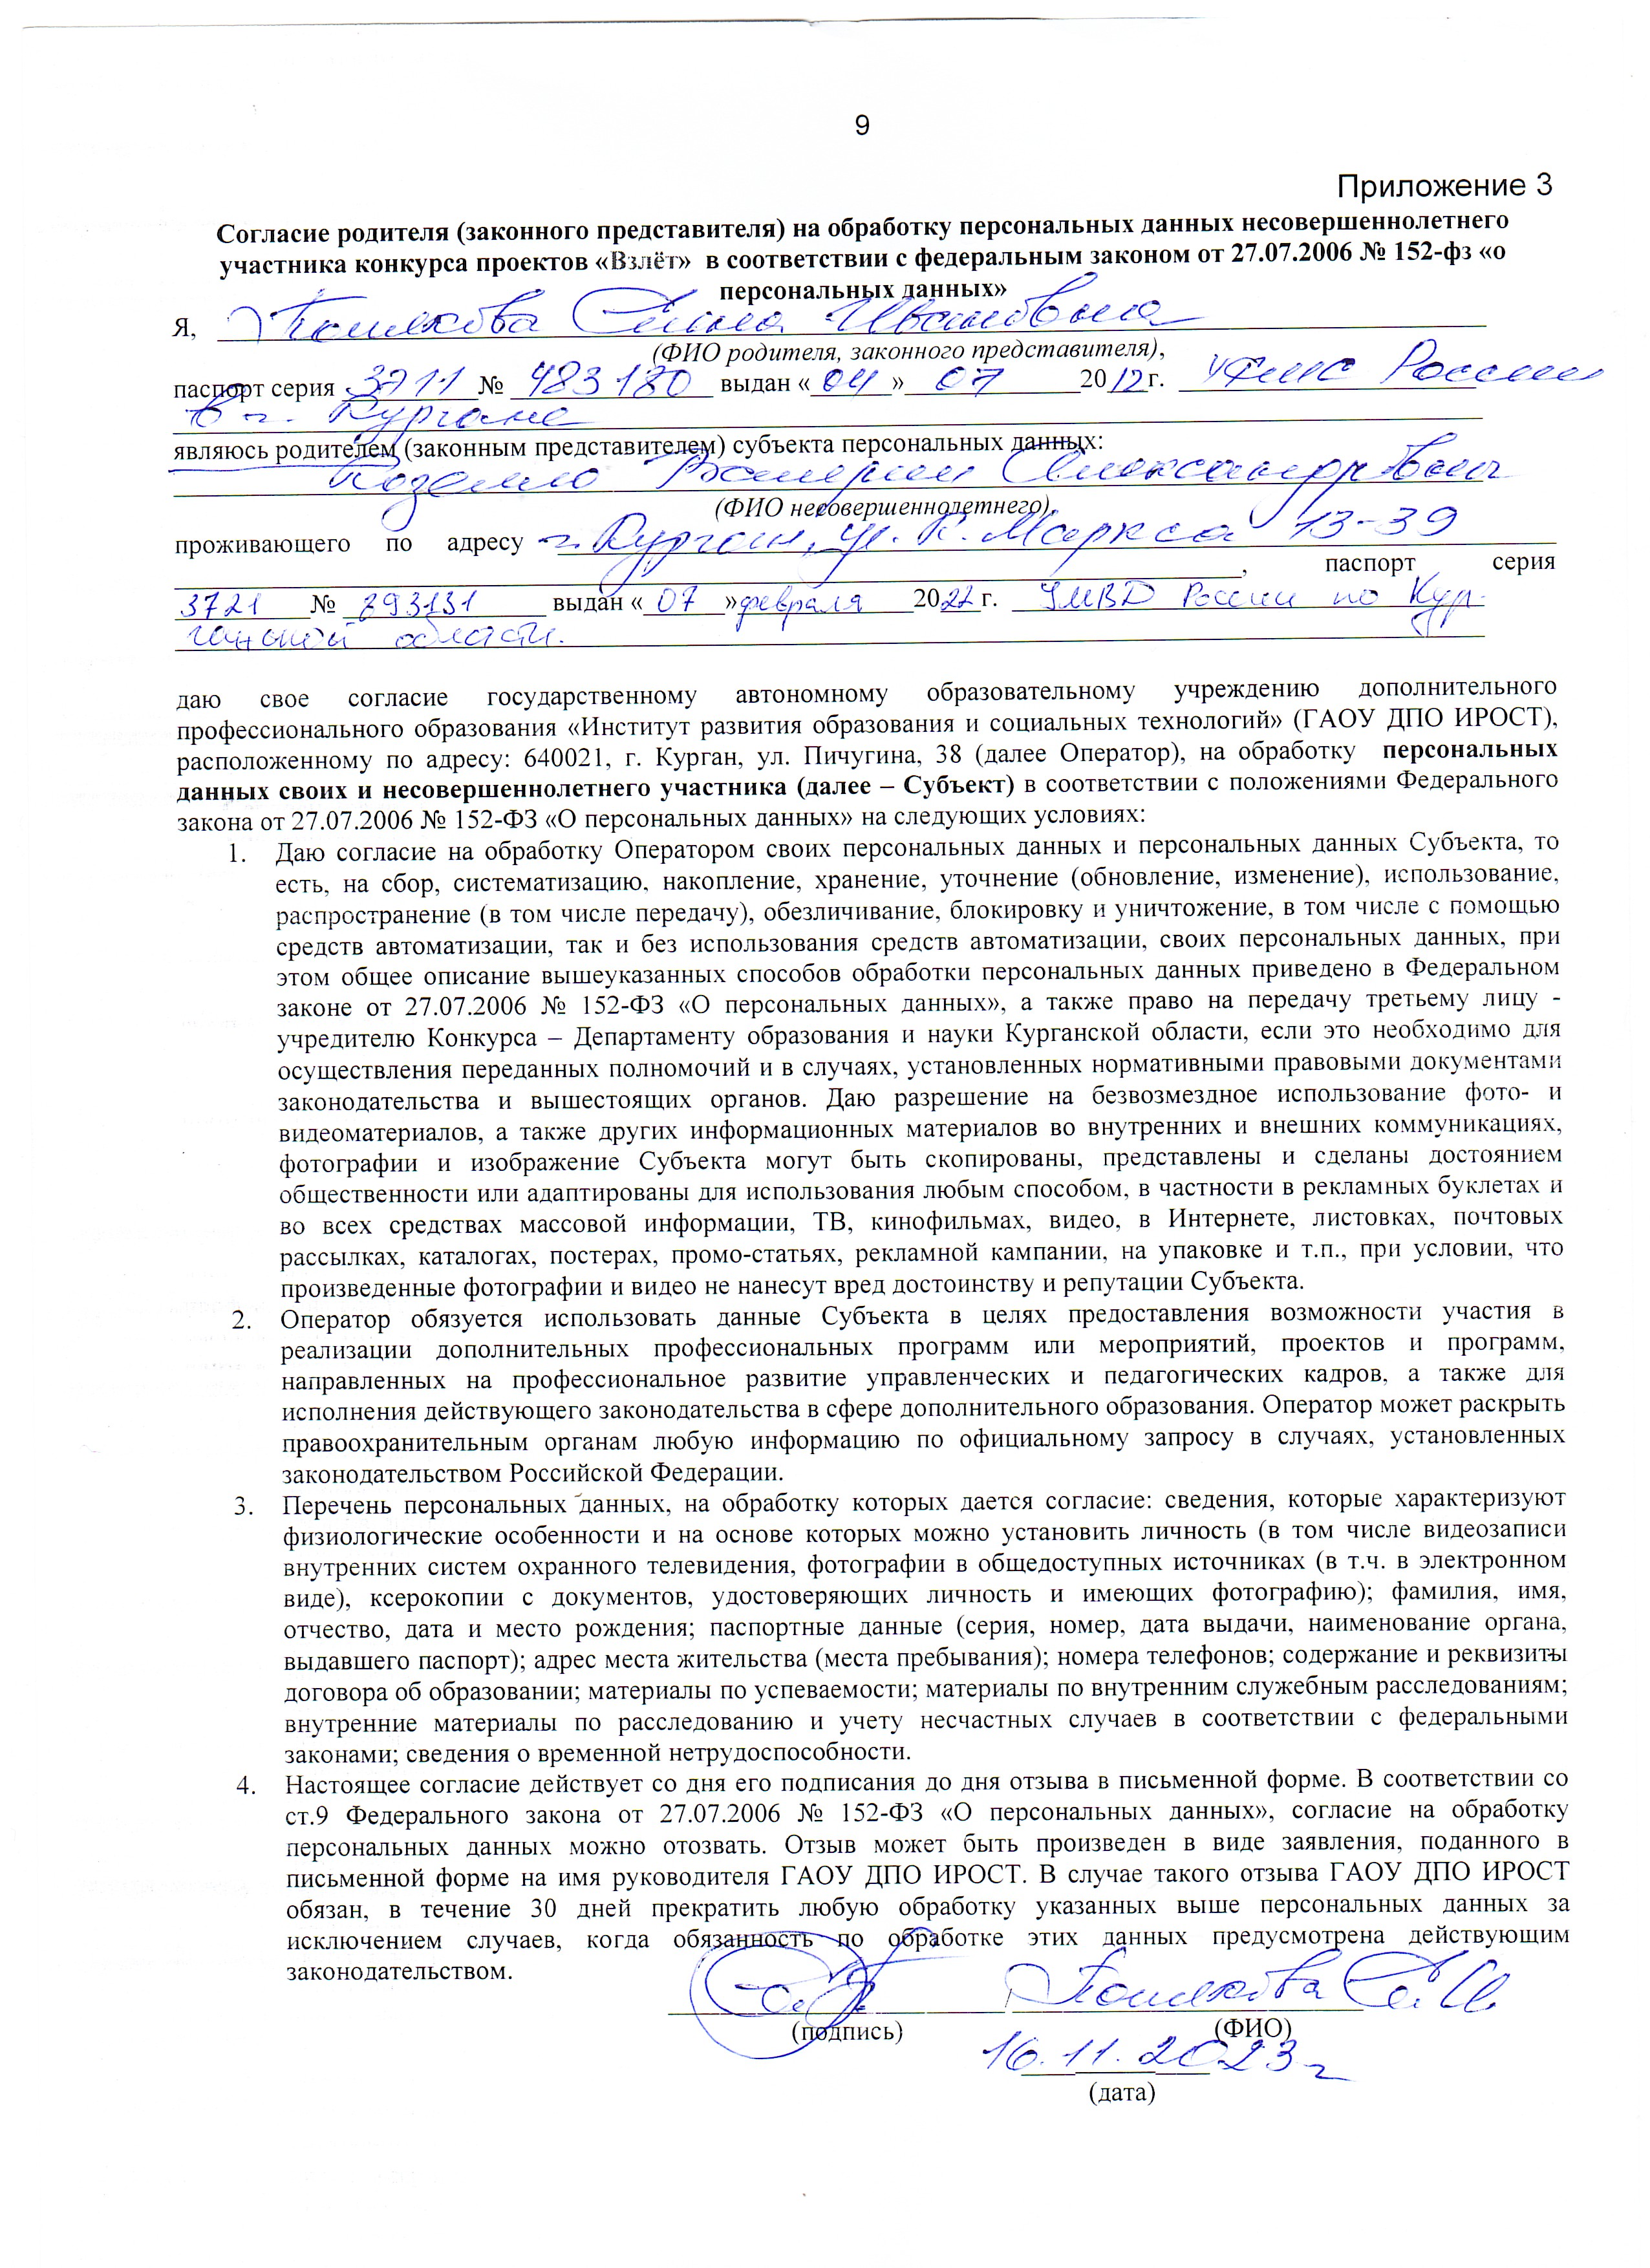 9
Приложение 3
Согласие родителя (законного представителя) на обработку персональных данных несовершеннолетнего
участника конкурса проектов «Взлёт» в соответствии с федеральным законом от 27.07.2006 № 152-фз «о
персональных данных»
Я, Полякова Ивановна
(ФИО родителя, законного представителя),
паспорт серия 3711 № 483180 выдан «04» 07 2012 г. УФМС России
в г. Кургане
являюсь родителем (законным представителем) субъекта персональных данных:
Александровны
(ФИО несовершеннолетнего),
проживающего по адресу г. Курган, ул. К. Маркса 13-39
, паспорт серия
3721 № 793131 выдан «07» февраля 2022 г. УМВД России по Кур-
ганской области.
даю свое согласие государственному автономному образовательному учреждению дополнительного
профессионального образования «Институт развития образования и социальных технологий» (ГАОУ ДПО ИРОСТ),
расположенному по адресу: 640021, г. Курган, ул. Пичугина, 38 (далее Оператор), на обработку персональных
данных своих и несовершеннолетнего участника (далее – Субъект) в соответствии с положениями Федерального
закона от 27.07.2006 № 152-ФЗ «О персональных данных» на следующих условиях:
1. Даю согласие на обработку Оператором своих персональных данных и персональных данных Субъекта, то
есть, на сбор, систематизацию, накопление, хранение, уточнение (обновление, изменение), использование,
распространение (в том числе передачу), обезличивание, блокировку и уничтожение, в том числе с помощью
средств автоматизации, так и без использования средств автоматизации, своих персональных данных, при
этом общее описание вышеуказанных способов обработки персональных данных приведено в Федеральном
законе от 27.07.2006 № 152-ФЗ «О персональных данных», а также право на передачу третьему лицу -
учредителю Конкурса – Департаменту образования и науки Курганской области, если это необходимо для
осуществления переданных полномочий и в случаях, установленных нормативными правовыми документами
законодательства и вышестоящих органов. Даю разрешение на безвозмездное использование фото- и
видеоматериалов, а также других информационных материалов во внутренних и внешних коммуникациях,
фотографии и изображение Субъекта могут быть скопированы, представлены и сделаны достоянием
общественности или адаптированы для использования любым способом, в частности в рекламных буклетах и
во всех средствах массовой информации, ТВ, кинофильмах, видео, в Интернете, листовках, почтовых
рассылках, каталогах, постерах, промо-статьях, рекламной кампании, на упаковке и т.п., при условии, что
произведенные фотографии и видео не нанесут вред достоинству и репутации Субъекта.
2. Оператор обязуется использовать данные Субъекта в целях предоставления возможности участия в
реализации дополнительных профессиональных программ или мероприятий, проектов и программ,
направленных на профессиональное развитие управленческих и педагогических кадров, а также для
исполнения действующего законодательства в сфере дополнительного образования. Оператор может раскрыть
правоохранительным органам любую информацию по официальному запросу в случаях, установленных
законодательством Российской Федерации.
3. Перечень персональных данных, на обработку которых дается согласие: сведения, которые характеризуют
физиологические особенности и на основе которых можно установить личность (в том числе видеозаписи
внутренних систем охранного телевидения, фотографии в общедоступных источниках (в т.ч. в электронном
виде), ксерокопии с документов, удостоверяющих личность и имеющих фотографию); фамилия, имя,
отчество, дата и место рождения; паспортные данные (серия, номер, дата выдачи, наименование органа,
выдавшего паспорт); адрес места жительства (места пребывания); номера телефонов; содержание и реквизиты
договора об образовании; материалы по успеваемости; материалы по внутренним служебным расследованиям;
внутренние материалы по расследованию и учету несчастных случаев в соответствии с федеральными
законами; сведения о временной нетрудоспособности.
4. Настоящее согласие действует со дня его подписания до дня отзыва в письменной форме. В соответствии со
ст.9 Федерального закона от 27.07.2006 № 152-ФЗ «О персональных данных», согласие на обработку
персональных данных можно отозвать. Отзыв может быть произведен в виде заявления, поданного в
письменной форме на имя руководителя ГАОУ ДПО ИРОСТ. В случае такого отзыва ГАОУ ДПО ИРОСТ
обязан, в течение 30 дней прекратить любую обработку указанных выше персональных данных за
исключением случаев, когда обязанность по обработке этих данных предусмотрена действующим
законодательством.
Полякова Е. И.
(подпись) (ФИО)
16.11.2023 г
(дата)